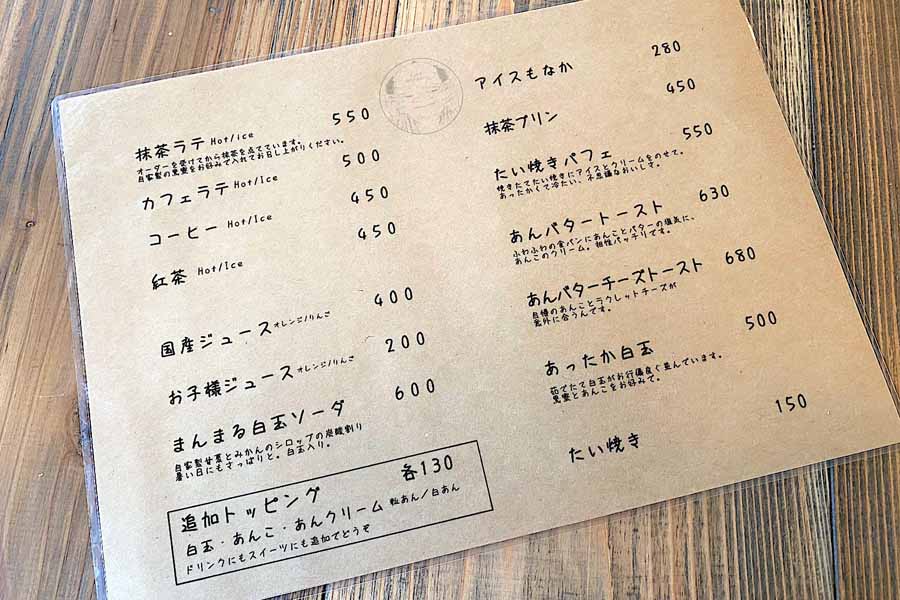 抹茶ラテ Hot/ice 550
オーダーを受けてから抹茶を点てています。
自家製の黒蜜をお好みで入れてお召し上がりください。
カフェラテ Hot/Ice 500
コーヒー Hot/Ice 450
紅茶 Hot/Ice 450
国産ジュース オレンジ/りんご 400
お子様ジュース オレンジ/りんご 200
まんまる白玉ソーダ 600
自家製甘夏とみかんのシロップの炭酸割り
暑い日にもさっぱりと。白玉入り。
追加トッピング 各130
白玉・あんこ・あんクリーム 粒あん/白あん
ドリンクにもスイーツにも追加でどうぞ
アイスもなか 280
抹茶プリン 450
たい焼きパフェ 550
焼きたてたい焼きにアイスとクリームをのせて。
あったかくて冷たい、不思議なおいしさ。
あんバタートースト 630
ふわふわの食パンにあんことバターの塩気に、
あんこのクリーム。相性バッチリです。
あんバターチーズトースト 680
自慢のあんことラクレットチーズが
意外に合うんです。
あったか白玉 500
茹でたて白玉がお行儀良く並んでいます。
黒蜜とあんこをお好みで。
たい焼き 150